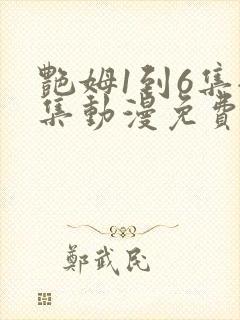 艷姆1到6集
集動漫免費
鄭武民